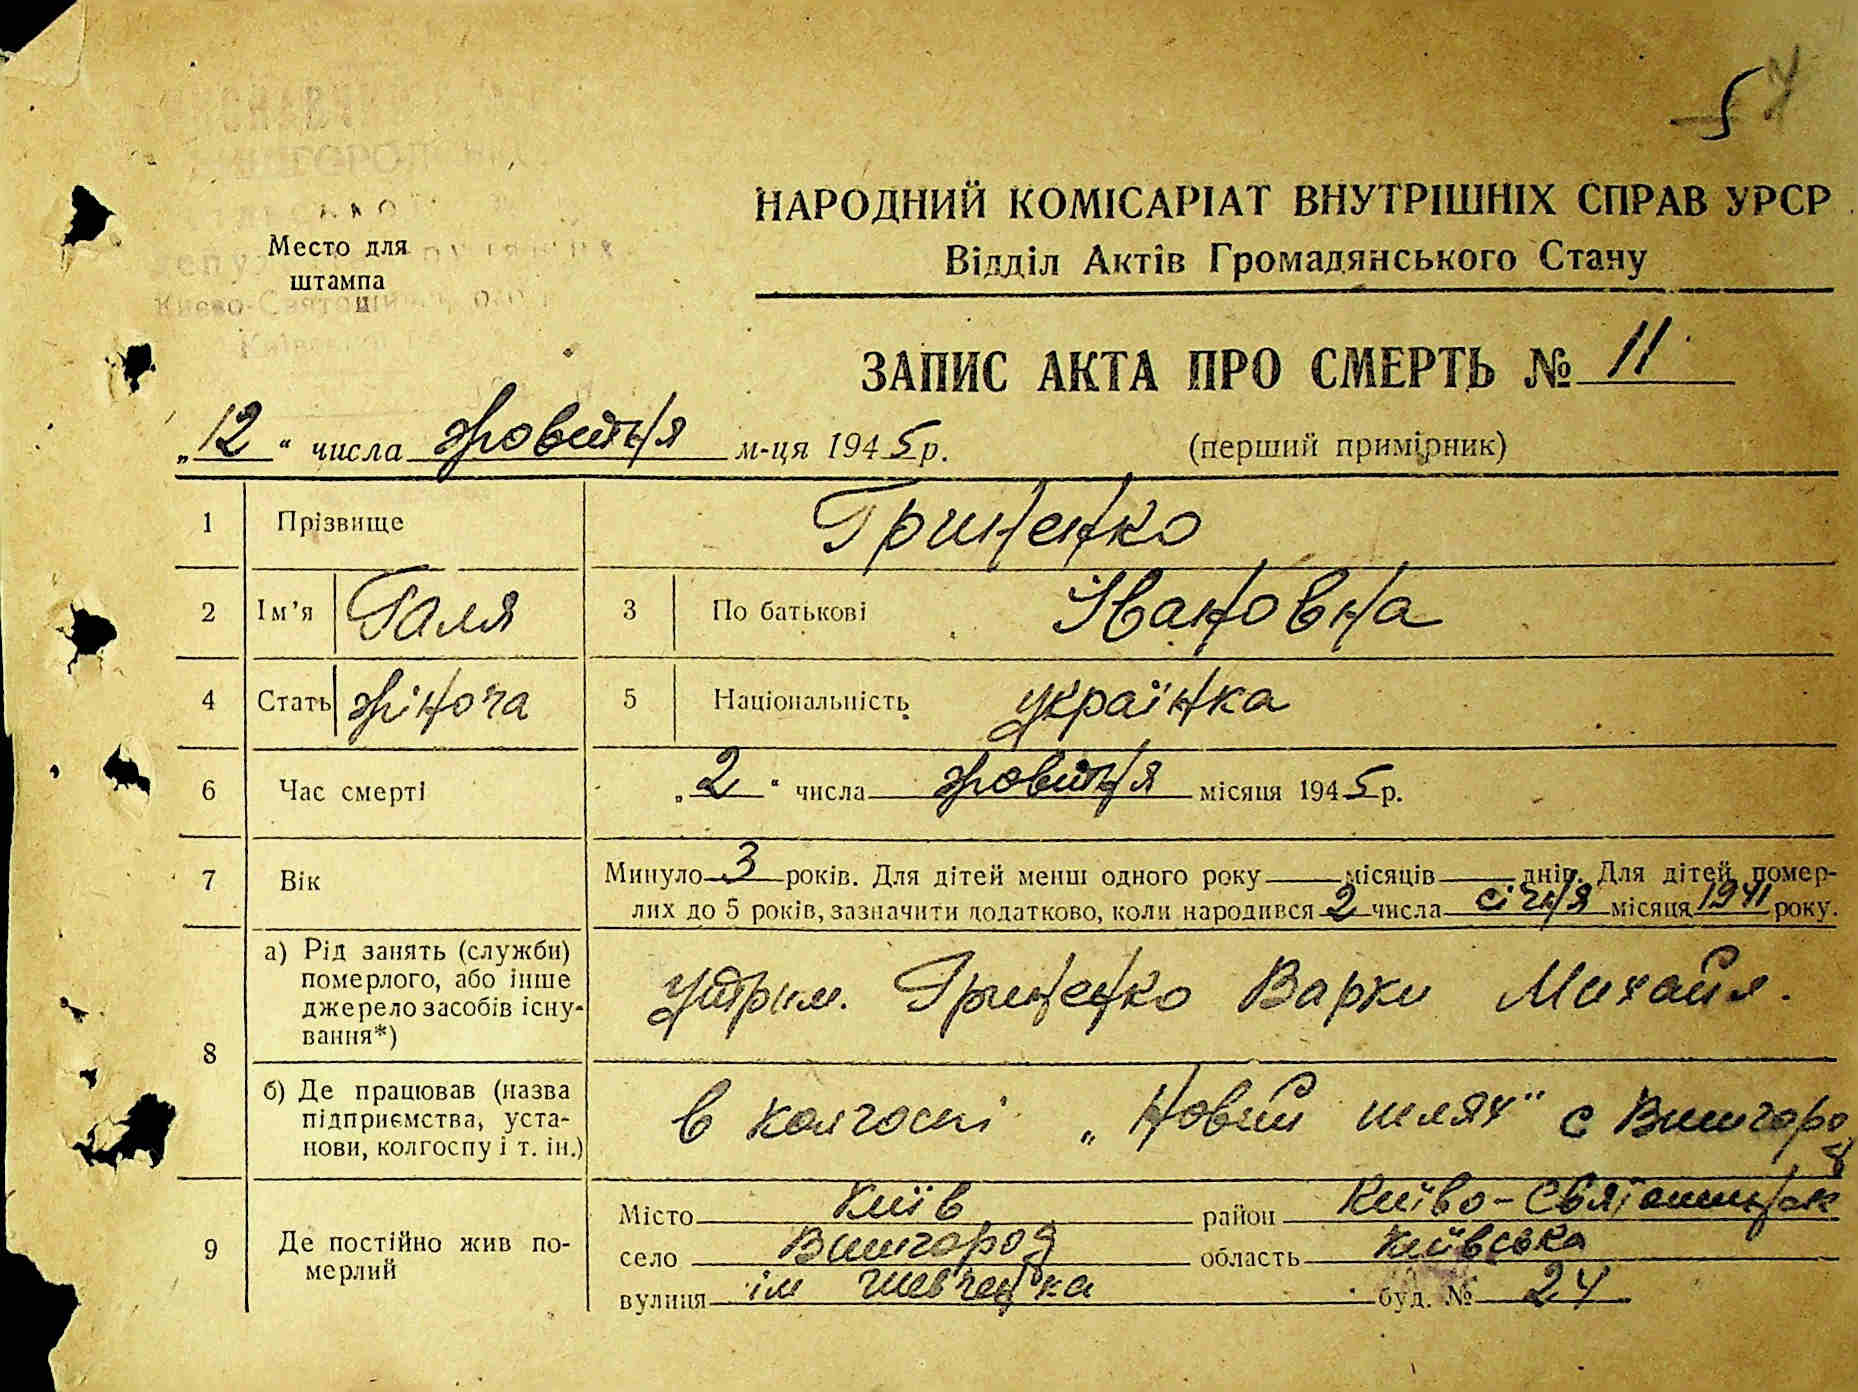 5
НАРОДНИЙ КОМІСАРІАТ ВНУТРІШНІХ СПРАВ УРСР
Відділ Актів Громадянського Стану
Место для
штампа
Києво-Святошин
ЗАПИС АКТА ПРО СМЕРТЬ № 11
„12“ числа жовтня м-ця 1945 р.
(перший примірник)
1 Прізвище Гриненко
2 Ім’я Галя 3 По батькові Івановна
4 Стать жіноча 5 Національність українка
6 Час смерті „2“ числа жовтня місяця 1945 р.
7 Вік Минуло 3 років. Для дітей менш одного року місяців днів. Для дітей, помер-
лих до 5 років, зазначити додатково, коли народився 2 числа січня місяця 1941 року.
8 а) Рід занять (службы) померлого, або інше джерело засобів існу-вання*) Утрим. Гриненко Варки Михайл.
б) Де працював (назва підприємства, уста-нови, колгоспу і т. ін.) в колгоспі „Новий шлях“ с Вишгород
9 Де постійно жив по-мерлий
Місто Київ район Київо-Святошинськ
село Вишгород область Київська
вулиця ім Шевченка буд. № 24